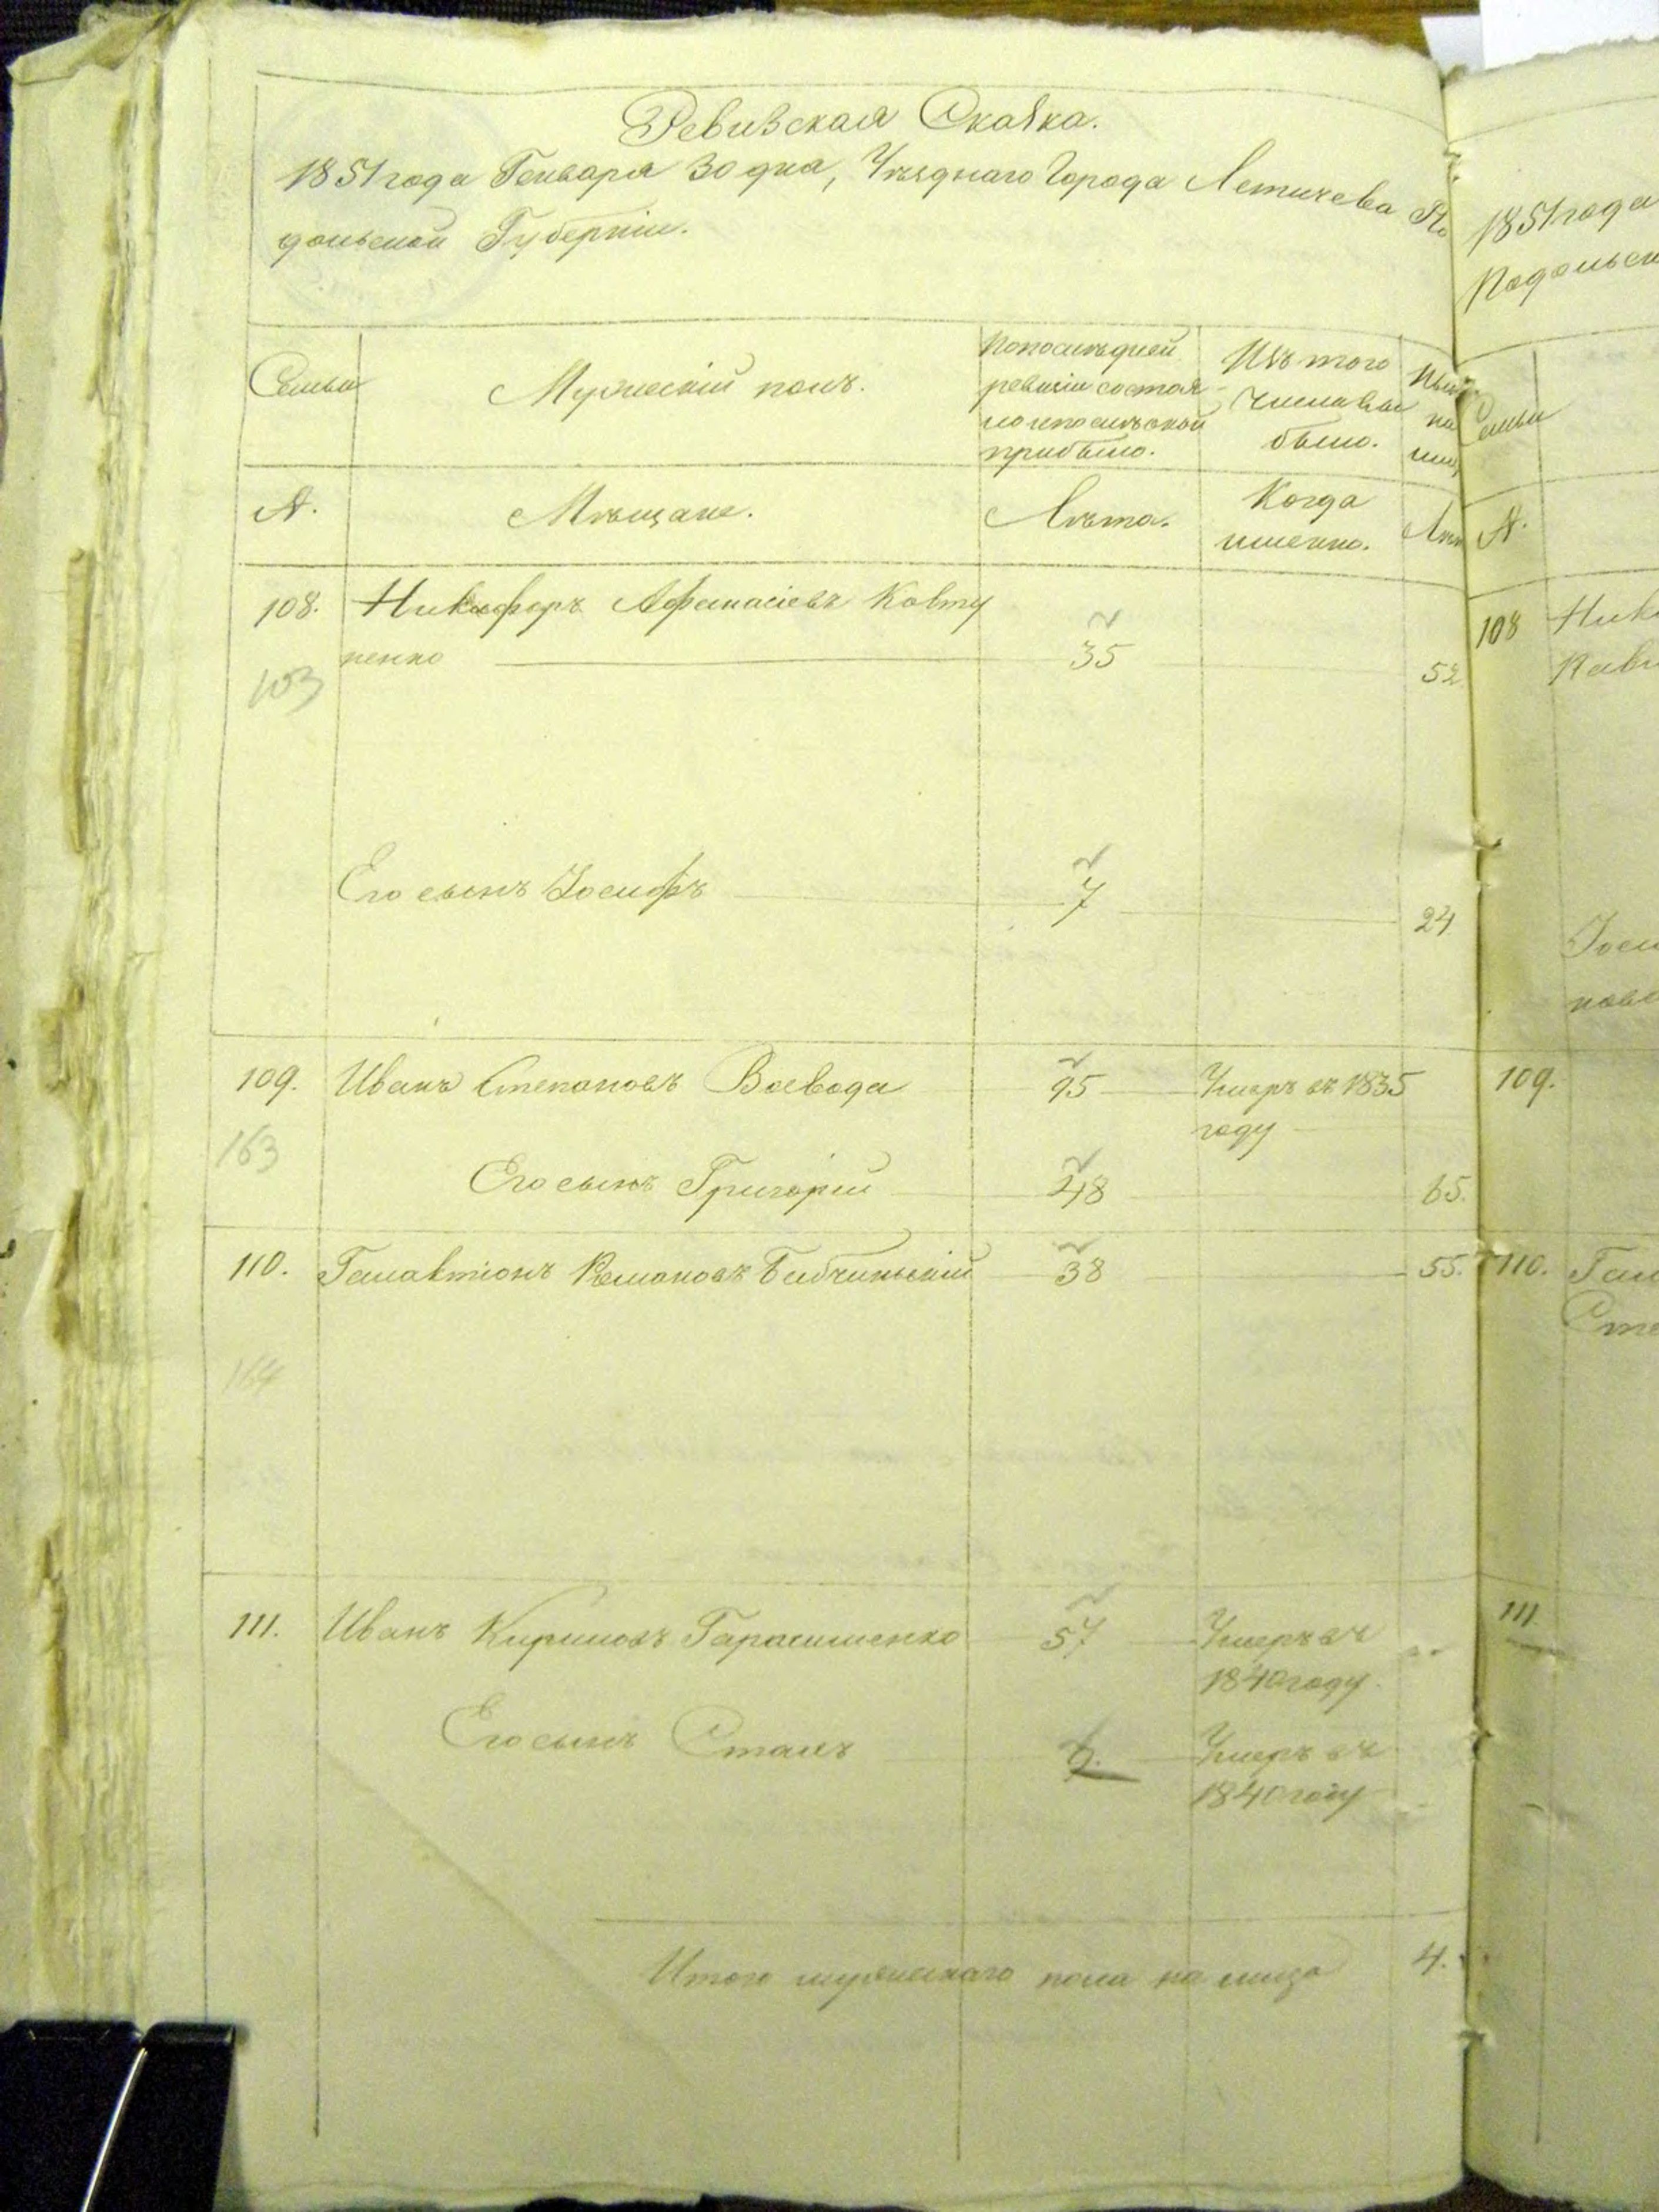 Ревизская Сказка.
1851 года Генваря 30 дня, Уѣзднаго Города Летичева По
дольской Губерніи.
Семьи
Мужескій полъ.
По последней
ревизіи состоя
ло и после оной
прибыло.
Изъ того
числа вы
было.
Ны
на
лиц
№.
Мѣщане.
Лѣта.
Когда
именно.
Лѣт
108. Никифоръ Афанасіевъ Ковту
ненко 35 52
103
Его сынъ Іосифъ 7 24
109. Иванъ Степановъ Воевода 95 Умеръ въ 1835
году
163
Его сынъ Григорій 48 65.
110. Галактіонъ Романовъ Бабчинскій 38 55.
164
111. Иванъ Кириловъ Гарасименко 57 Умеръ въ
1840 году
Его сынъ 9. Умеръ въ
1840 году
Итого мужескаго пола на лицо 4.
1851 года
Подольск
Семьи
№.
108 Ник
Іоси
109.
110. Гал
Сте
111